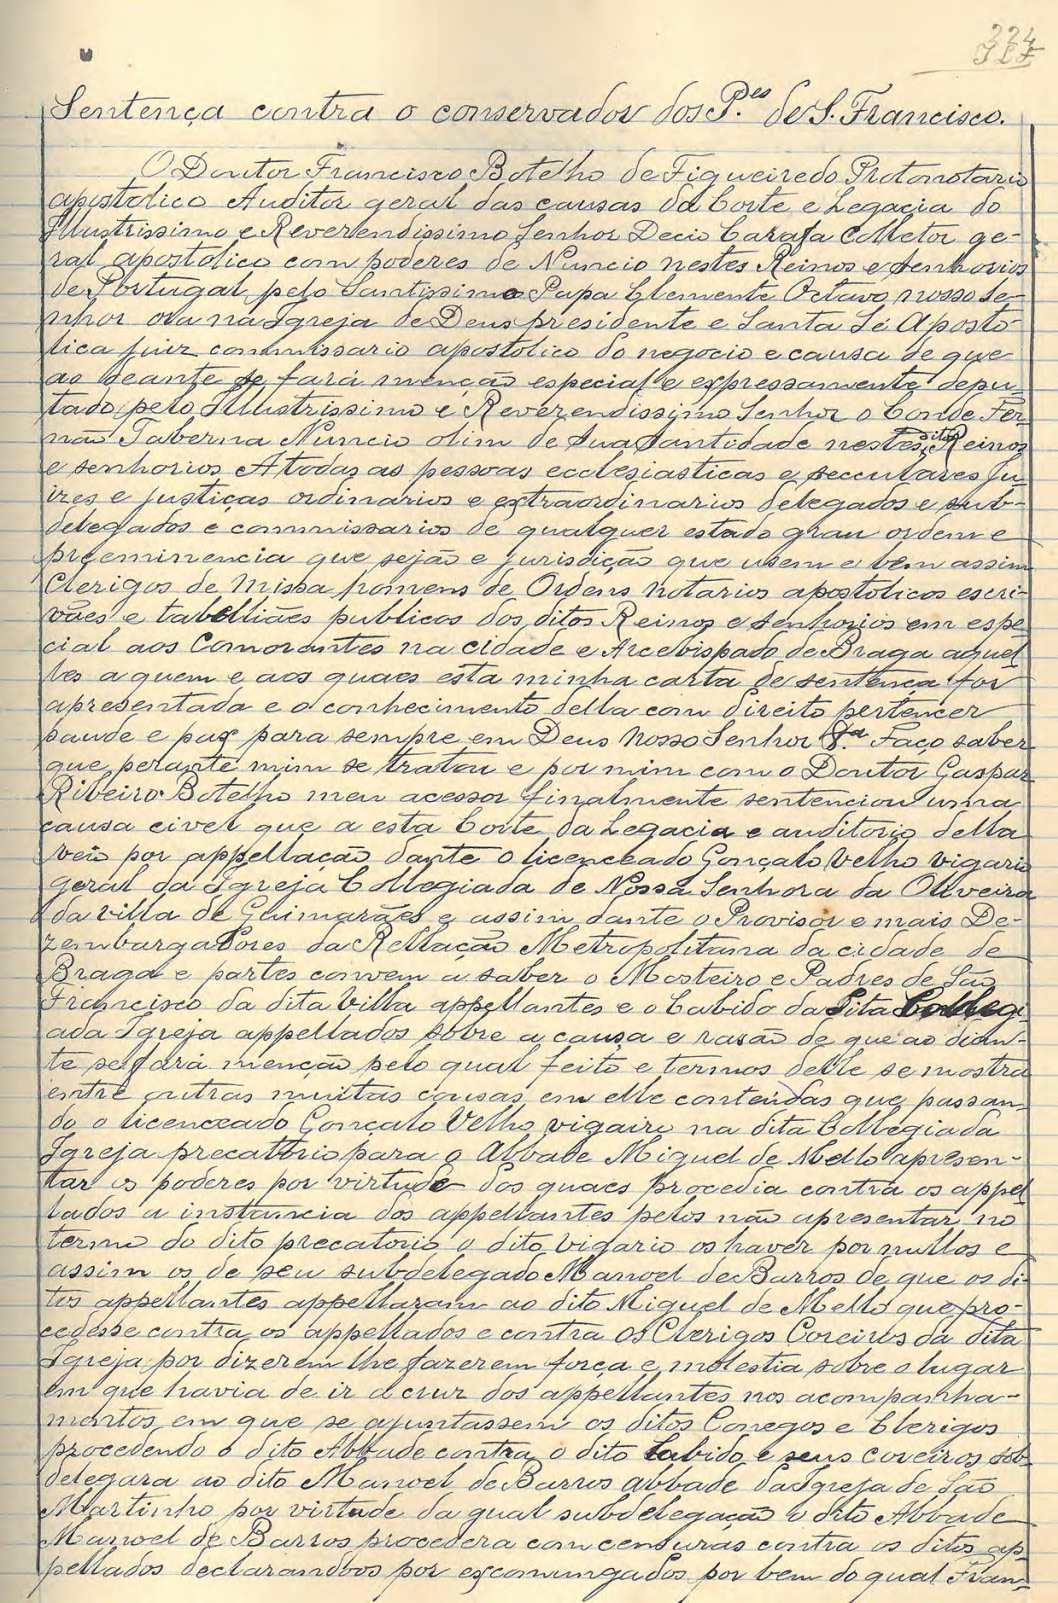 224
Sentença contra o conservador dos P.es de S. Francisco.
O Doutor Francisco Botelho de Figueiredo Protonotario
apostolico Auditor geral das causas da Corte e Legacia do
Illustrissimo e Reverendissimo Senhor Decio Carafa Colletor ge-
ral apostolico com poderes de Nuncio nestes Reinos e senhorios
de Portugal pelo Santissimo Papa Clemente Octavo nosso Se-
nhor ora na Igreja de Deus presidente e Santa Sé Aposto-
lica juiz commissario apostolico do negocio e causa de que
ao deante se fará menção especial e expressamente depu-
tado pelo Illustrissimo e Reverendissimo Senhor o Conde Fer-
não Taberna Nuncio olim de Sua Santidade nestes ditos Reinos
e senhorios A todas as pessoas ecclesiasticas e secculares Ju-
izes e justiças ordinarios e extraordinarios delegados e sub-
delegados e commissarios de qualquer estado grau ordem e
preeminencia que sejão e jurisdição que usem e bem assim
Clerigos de Missa homens de Ordens Notarios apostolicos escri-
vães e tabelliães publicos dos ditos Reinos e senhorios em espe-
cial aos Comorantes na cidade e Arcebispado de Braga aquel-
les a quem e aos quaes esta minha carta de sentença for
apresentada e o conhecimento della com direito pertencer
saude e paz para sempre em Deus Nosso Senhor Faço saber
que perante mim se tratou e por mim com o Doutor Gaspar
Ribeiro Botelho meu acessor finalmente sentenciou uma
causa civel que a esta Corte da Legacia e auditorio della
veio por appellação dante o licenceado Gonçalo Velho vigario
geral da Igreja Collegiada de Nossa Senhora da Oliveira
da villa de Guimarães e assim dante o Provisor e mais De-
zembargadores da Rellação Metropolitana da cidade de
Braga e partes convem a saber o Mosteiro e Padres de São
Francisco da dita Villa appellantes e o Cabido da dita Collegi-
ada Igreja appellados sobre a causa e rasão de que ao dian-
te se fará menção pelo qual feito e termos delle se mostra
entre outras muitas cousas em elle conteúdas que passan-
do o licenceado Gonçalo Velho vigairo na dita Collegiada
Igreja precatorio para o Abbade Miguel de Mello apresen-
tar os poderes por virtude dos quaes procedia contra os appel-
lados a instancia dos appellantes pelos não apresentar no
termo do dito precatorio o dito Vigario os haver por nullos e
assim os de seu subdelegado Manoel de Barros de que os di-
tos appellantes appellaram ao dito Miguel de Mello que pro-
cedesse contra os appellados e contra os Clerigos Coreiros da dita
Igreja por dizerem lhe fazerem força e molestia sobre o lugar
em que havia de ir a cruz dos appellantes nos acompanha-
mentos em que se ajuntassem os ditos Conegos e Clerigos
procedendo o dito Abbade contra o dito Cabido e seus coreiros sob-
delegara ao dito Manoel de Barros abbade da Igreja de São
Martinho por virtude da qual subdelegação o dito Abbade
Manoel de Barros procedera com censuras contra os ditos ap-
pellados declarandoos por excomungados por bem do qual Fran-